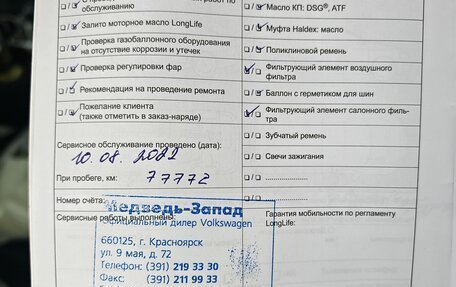 обслуживанию
Залито моторное масло LongLife
Проверка газобаллонного оборудования
на отсутствие коррозии и утечек
Проверка регулировки фар
Рекомендация на проведение ремонта
Пожелание клиента
(также отметить в заказ-наряде)
Сервисное обслуживание проведено (дата):
10.08.2022
При пробеге, км: 77772
Номер счёта:
Сервисные работы выполнены:
Медведь-Запад
Официальный дилер Volkswagen
660125, г. Красноярск
ул. 9 мая, д. 72
Телефон: (391) 219 33 30
Факс: (391) 211 99 33
Масло КП: DSG®, ATF
Муфта Haldex: масло
Поликлиновой ремень
Фильтрующий элемент воздушного
фильтра
Баллон с герметиком для шин
Фильтрующий элемент салонного филь-
тра
Зубчатый ремень
Свечи зажигания
Гарантия мобильности по регламенту
LongLife: